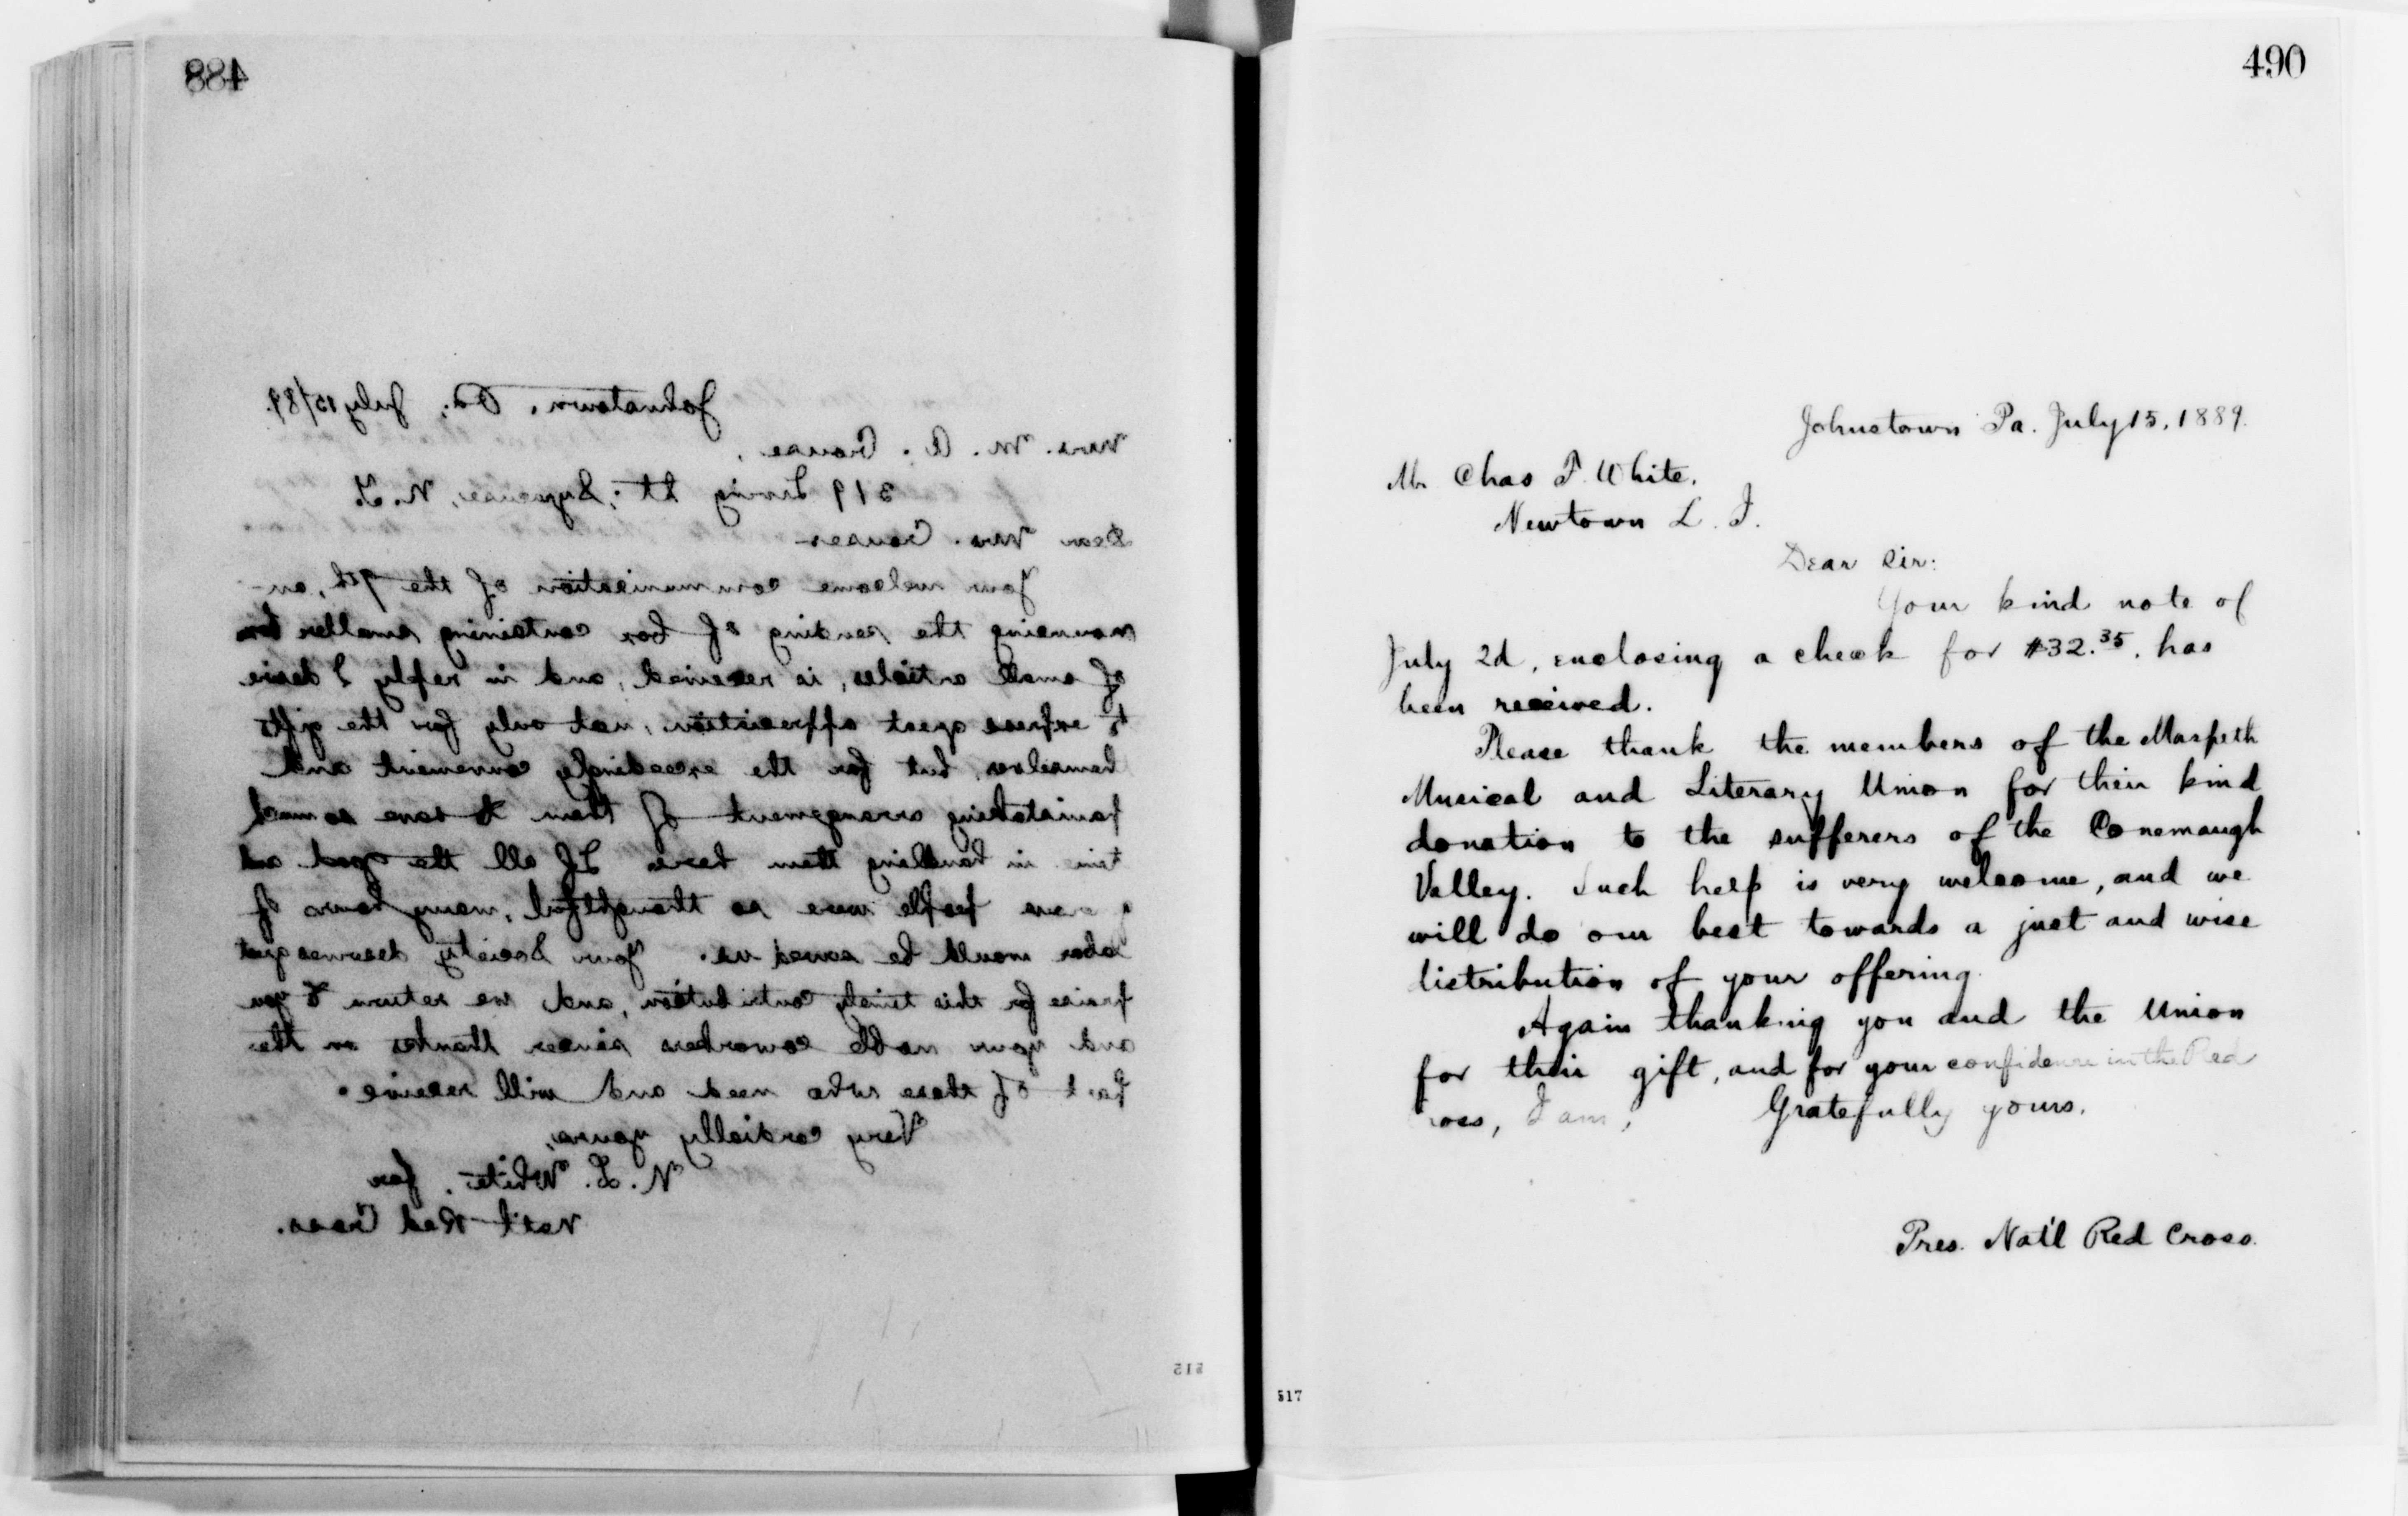 488
Johnstown, Pa, July 15/89.
Mrs. M. A. Crouse,
319 Irving St., Syracuse, N.Y.
Dear Mrs. Crouse-
Your welcome communication of the 9th, an-
nouncing the sending of box containing smaller box
of small articles, is received, and in reply I desire
to express great appreciation, not only for the gifts
themselves, but for the exceedingly convenient and
painstaking arrangement of them to save so much
time in handling them here. If all the good and
generous people were so thoughtful, many hours of
labor would be saved us. Your Society deserves great
praise for this timely contribution, and we return to you
and your noble coworkers sincer thanks on the
part of those who need and will receive.
Very cordially yours,
N. L. White, for
Nat'l Red Cross.
515
490
Johnstown Pa. July 15, 1889.
Mr. Chas P. White.
Newtown L. I.
Dear Sir:
Your kind note of
July 2d, enclosing a check for $32.35, has
been received.
Please thank the members of the Maspeth
Musical and Literary Union for their kind
donation to the sufferers of the Conemaugh
Valley. Such help is very welcome, and we
will do our best towards a just and wise
distribution of your offering.
Again thanking you and the Union
for their gift, and for your confidence in the Red
Cross, I am, Gratefully yours,
Pres. Nat'l Red Cross.
517